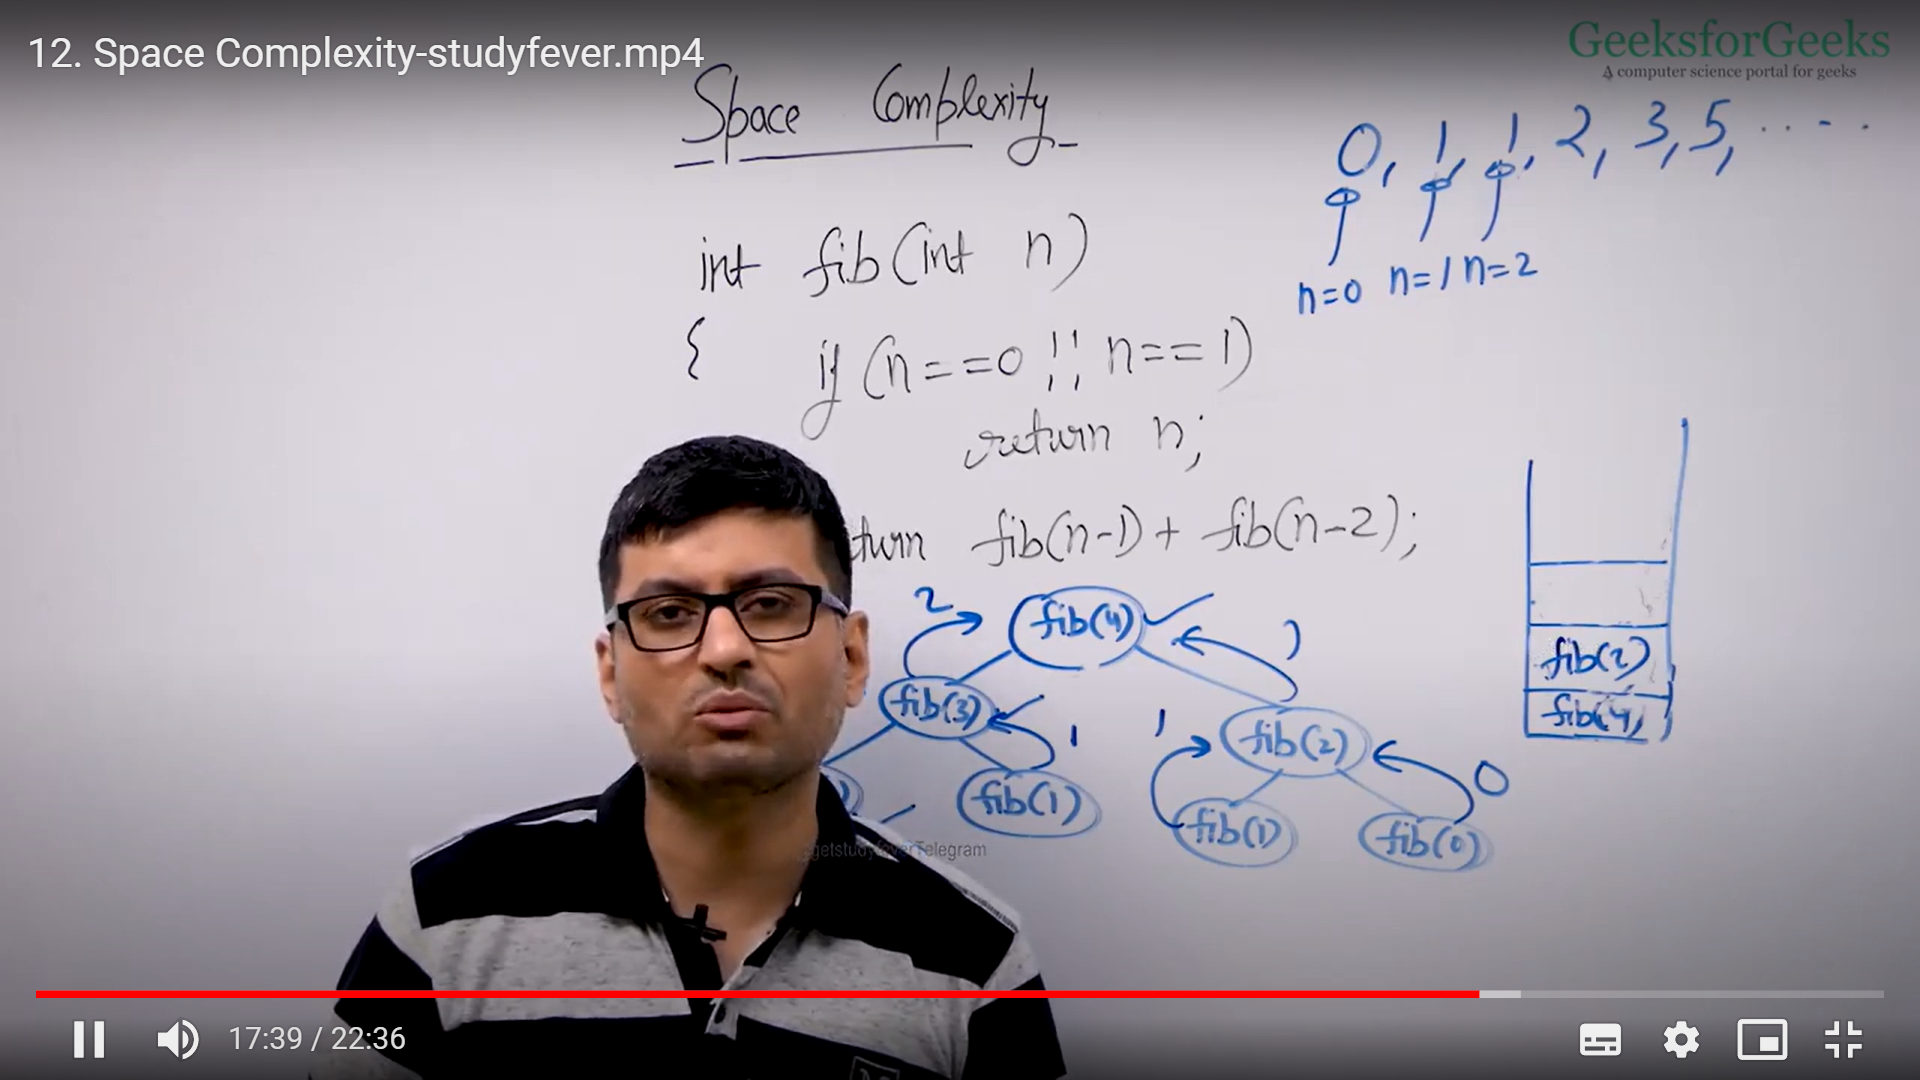 12. Space Complexity-studyfever.mp4
GeeksforGeeks
A computer science portal for geeks
Space Complexity
0, 1, 1, 2, 3, 5, .....
n=0 n=1 n=2
int fib(int n)
{ if (n==0 || n==1)
return n;
turn fib(n-1) + fib(n-2);
2 fib(4) 1
fib(3) 1
1 fib(2) 0
fib(1)
fib(1) fib(0)
fib(2)
fib(4)
getstudyfeverTelegram
17:39 / 22:36